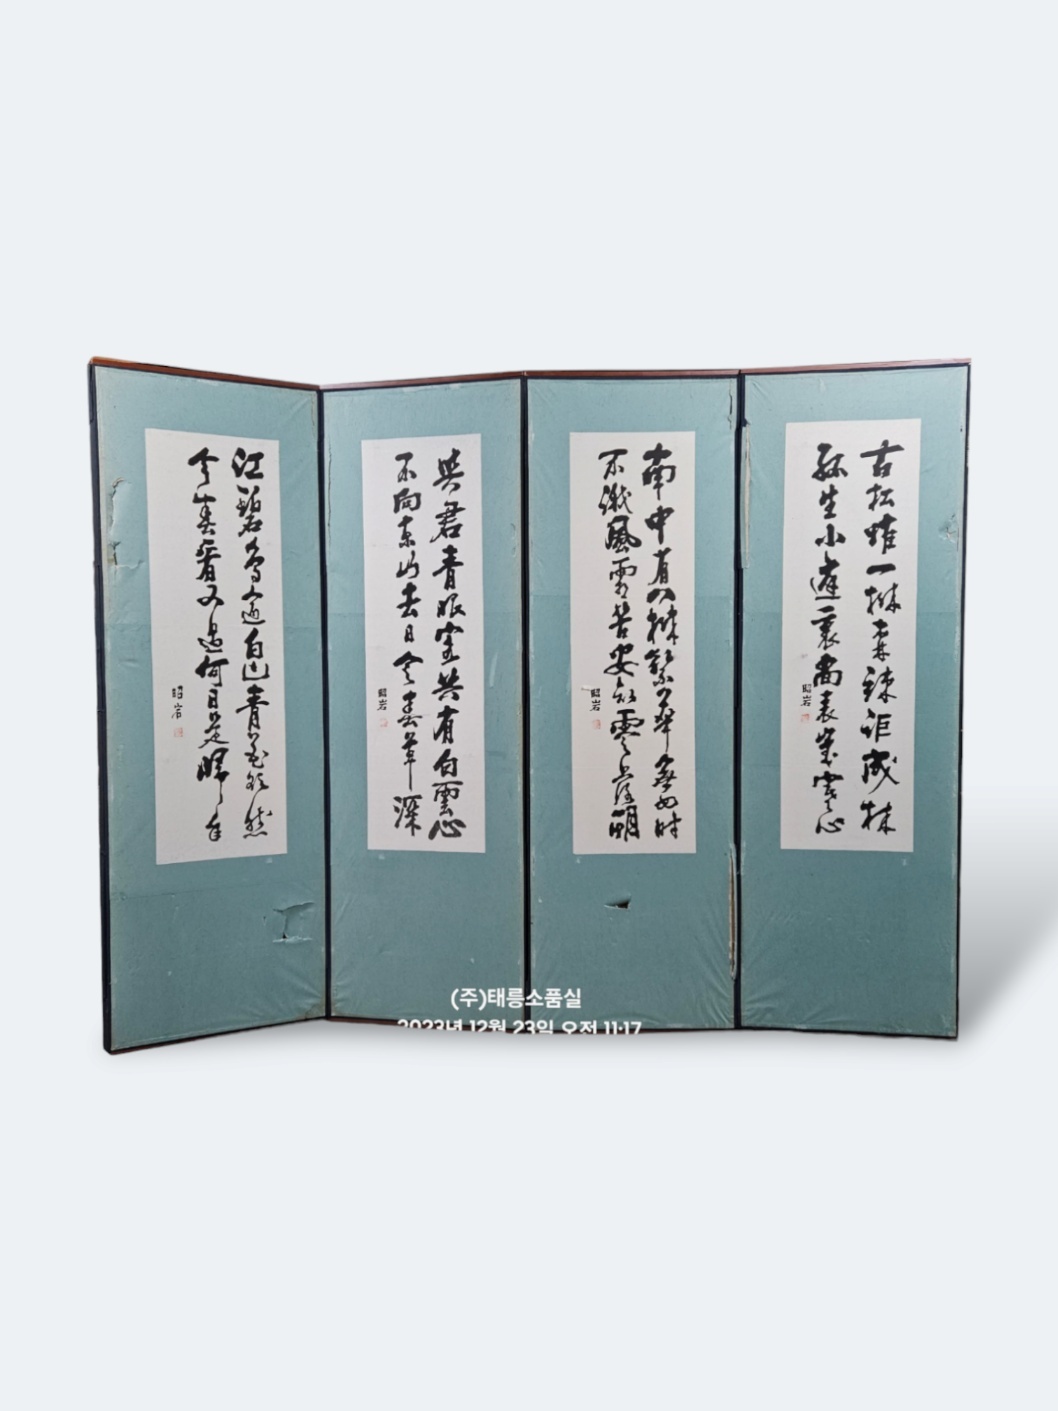 古松唯一樹森竦詎成林
孤生小庭裏尚表歲寒心
昭岩
南中有八樹繁華無四時
不識風霜苦安知零落期
昭岩
與君青眼客共有白雲心
不向東山去日令春草深
昭岩
江碧鳥逾白山青花欲然
今春看又過何日是歸年
昭岩
(주)태릉소품실
2023년 12월 23일 오전 11:17